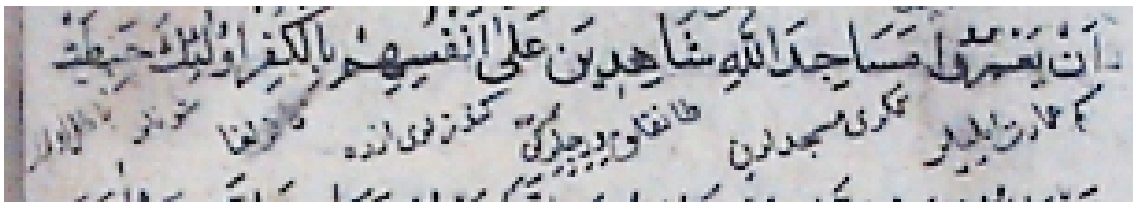 اَنْ يَعْمُرُوا مَسَاجِدَ اللّٰهِ شَاهِدِينَ عَلٰى اَنْفُسِهِمْ بِالْكُفْرِ اُولٰئِكَ حَبِطَتْ
كه عمارت ايليلر تكرى مسجدلرين طانقلق ويرجيلركن كندزلرى اوزره كافرلغا شونلر باطل اولدى